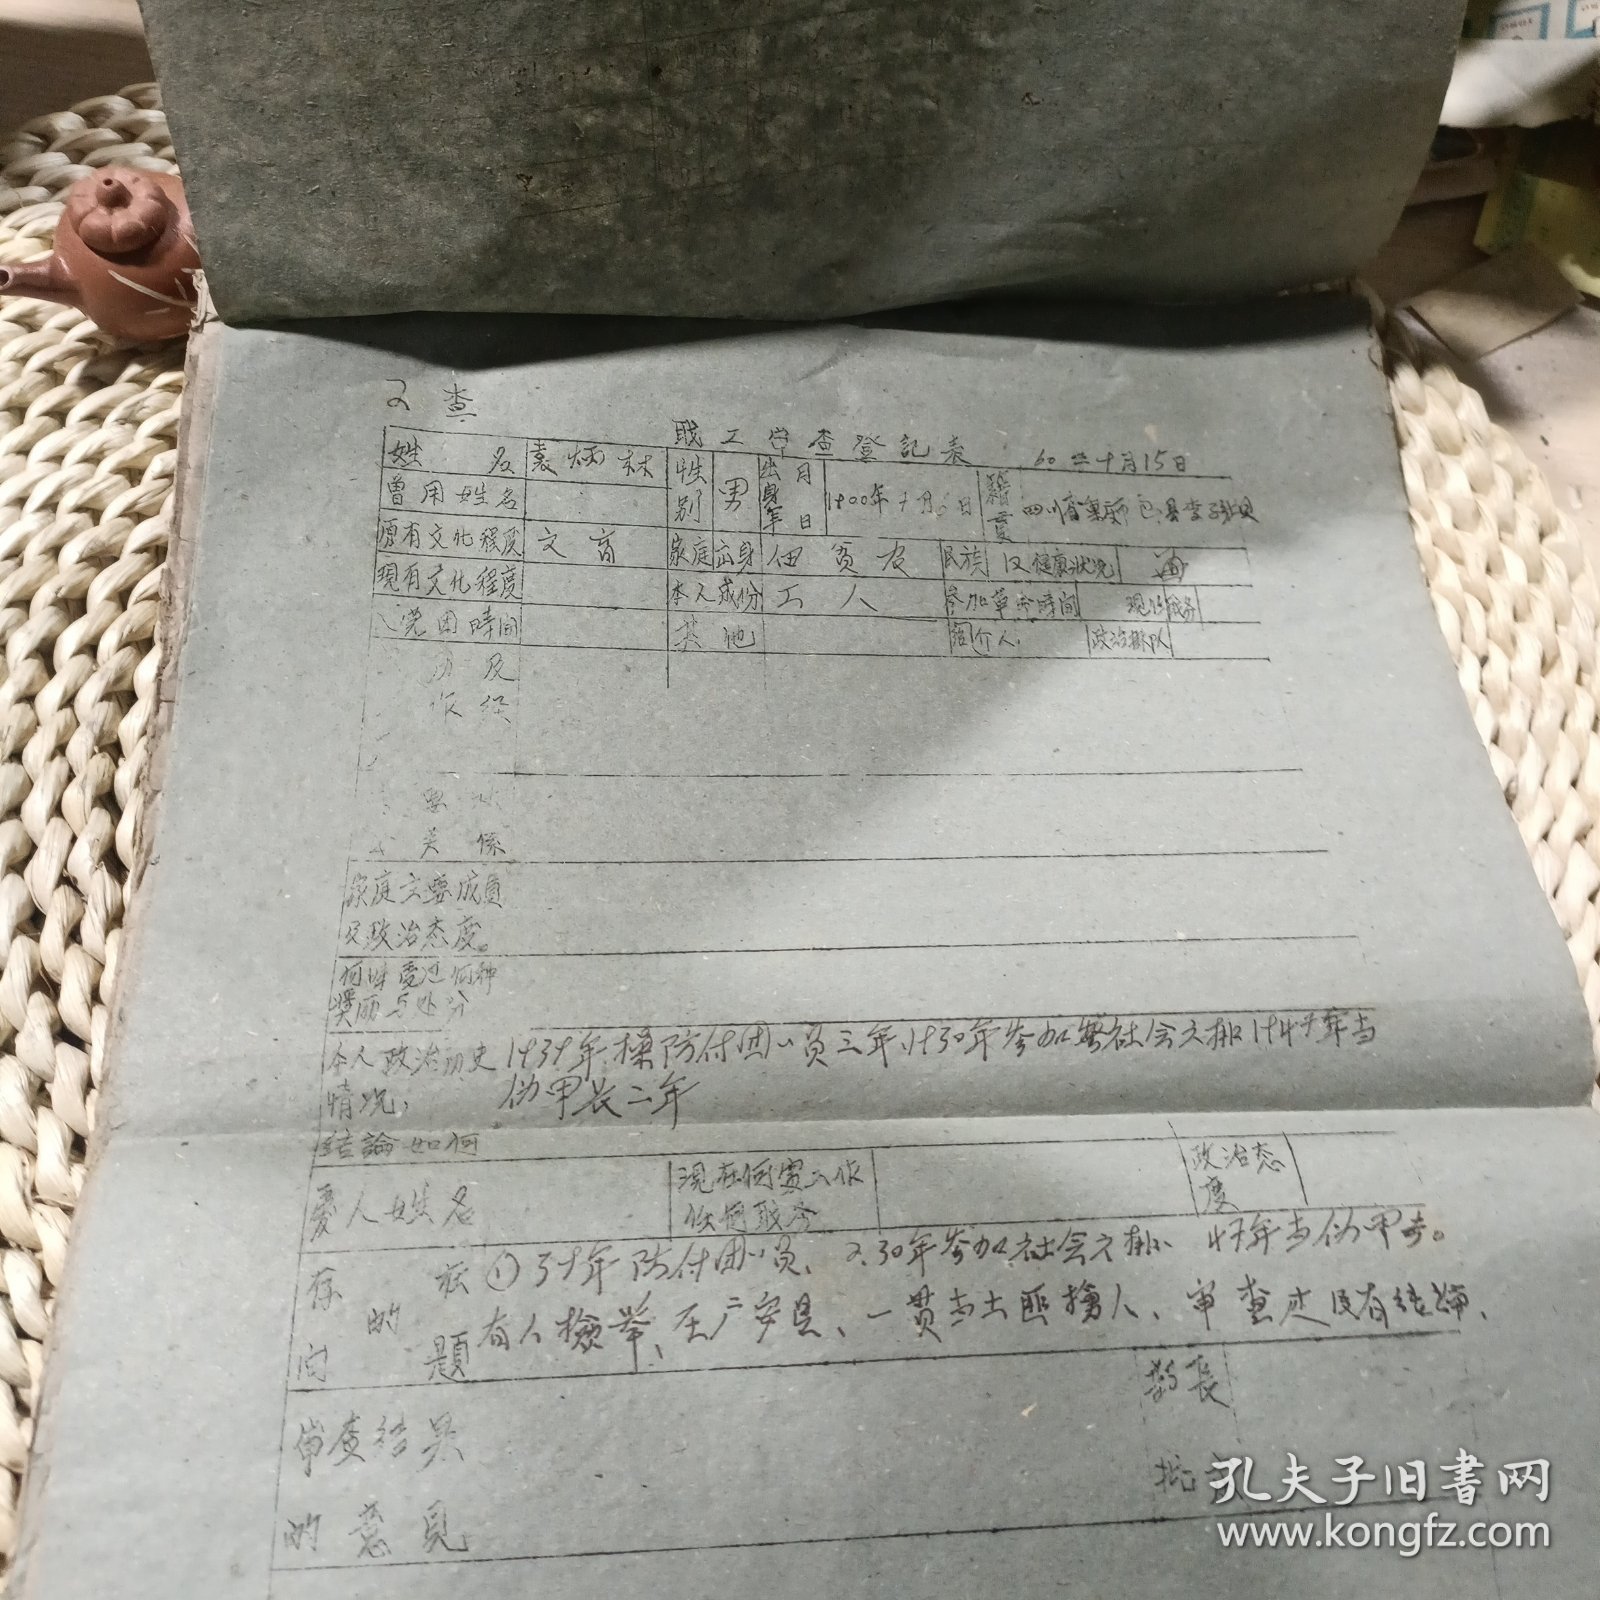 又查
职工审查登記表 60年十月15日
姓名 袁炳林 性别 男 出身年月日 1900年十月6日 籍贯 四川省
曾用姓名
原有文化程度 文盲 家庭出身 佃贫农 民族 汉 健康状况
現有文化程度 本人成份 工人 参加革命時间 現任职务
党团時间 其他 介人 政治排队
历及
作经
关係
家庭主要成員
及政治态度
何时受过何种
奖励与处分
本人政治历史 1939年 防付团小员三年、1930年参加 社会 1947年当
情况： 伪甲长二年
结論如何
爱人姓名 現在何处工作 政治态
任何职务 度
存在 ①39年防付团小员、2.30年参加社会 47年当伪甲长。
的 有人檢举、 、一贯当土匪搶人、审查过没有结論、
问題
首長
审查结果
批
的意見
孔夫子旧书网
www.kongfz.com